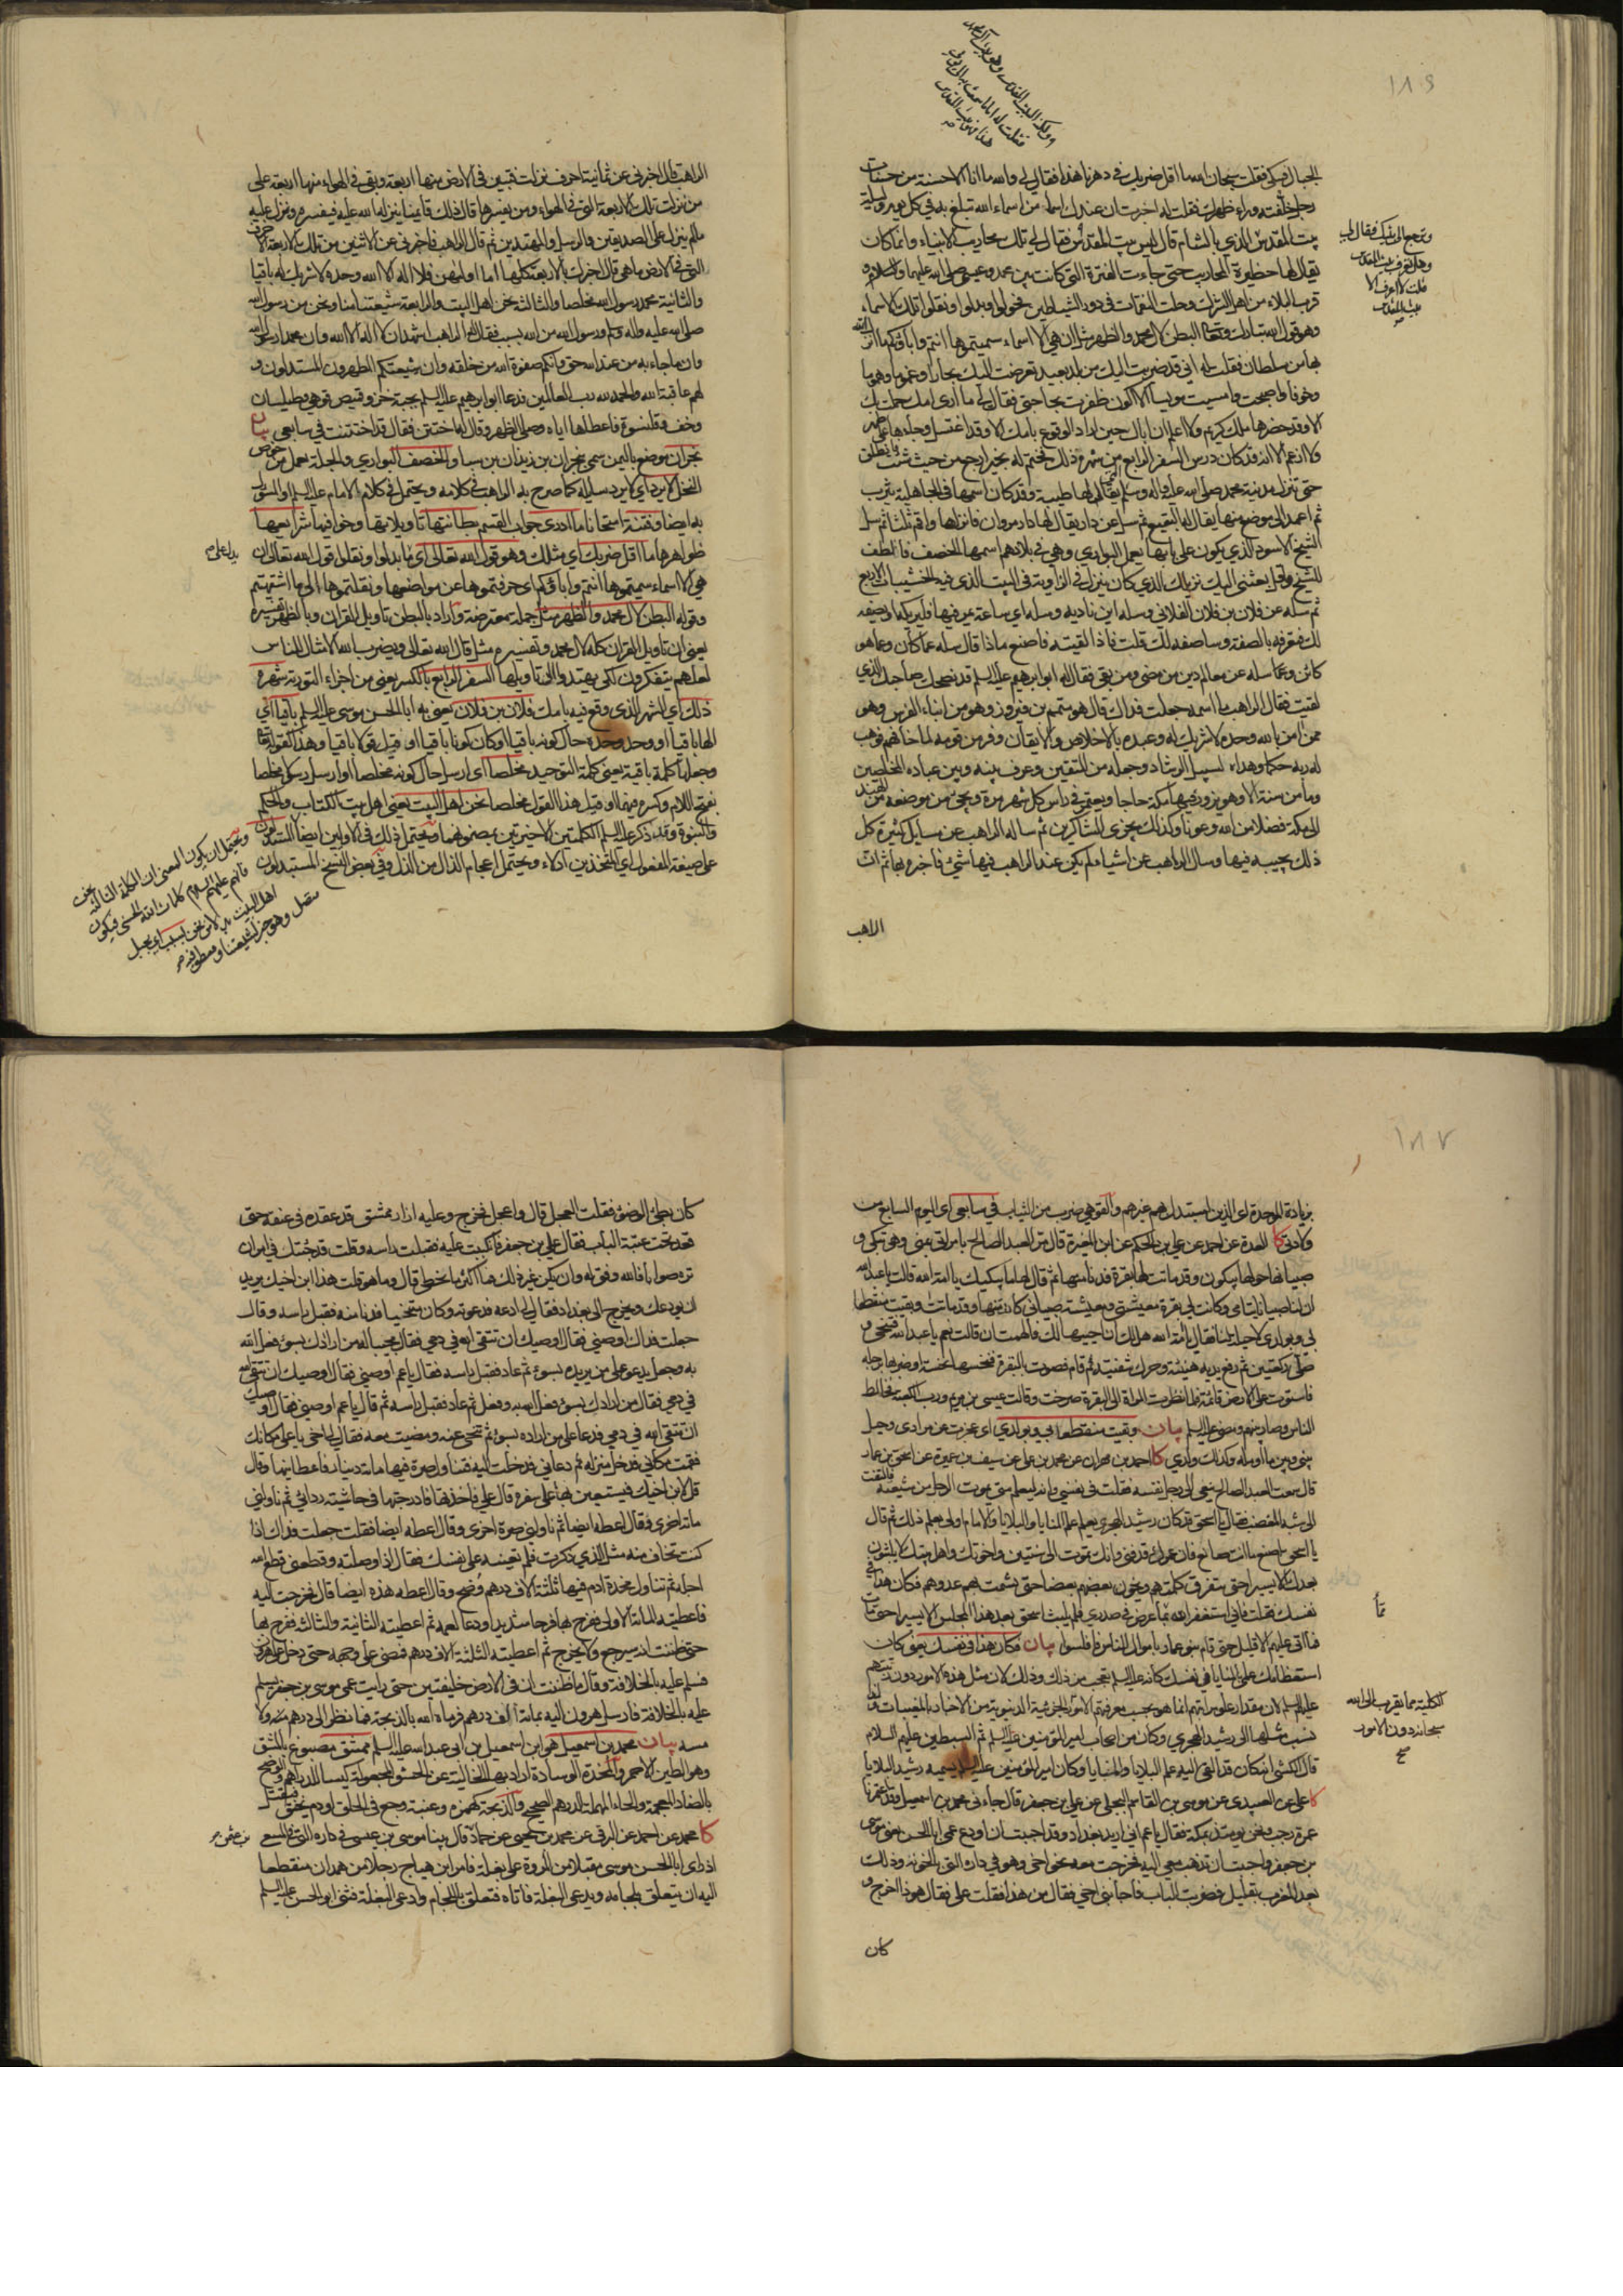 ١٨٦
الجبال فبكى فقلت سبحان الله ما اقل ضربك في دهرنا هذا فقال لي والله ما انا الا حسنة من حسنات
رجل خلفته وراء ظهرك فقلت له اخبرت ان عندك اسما من اسماء الله تبلغ به في كل يوم وليلة
بيت المقدس الذي بالشام قال ليس بيت المقدس فقال لي تلك محاريب الانبياء وانما كان
يقال لها حظيرة المحاريب حتى جاءت الفترة التي كانت بين محمد وعيسى صلى الله عليهما والسلام و
قرب البلاء من اهل الشرك وحلت النقمات في دور الشياطين فحولوا وبدلوا ونقلوا تلك الاسماء
وهو قول الله تبارك وتعالى البطن لآل محمد والظهر مثل ان هي الا اسماء سميتموها انتم واباؤكم ما انزل الله
بها من سلطان فقلت له اني قد ضربت اليك من بلد بعيد تعرضت اليك بحارا وغموما وهموما
وخوفا واصبحت وامسيت مويسا الا اكون ظفرت بحاجتي فقال لي ما ارى امك حملت بك
الا وقد حضرها ملك كريم ولا اعلم ان اباك حين اراد الوقوع بامك الا وقد اغتسل وجاءها على طهر
ولا ازعم الا انه قد كان درس السفر الرابع من شهره ذلك فختم له بخير ارجع من حيث جئت فانطلق
حتى تنزل مدينة محمد صلى الله عليه واله وسلم يقال لها طيبة وقد كان اسمها في الجاهلية يثرب
ثم اعمد الى موضع منها يقال له البقيع ثم سل عن دار يقال لها دار مروان فانزلها واقم ثلثا ثم سل
الشيخ الاسود الذي يكون على بابها يعمل البواري وهي في بلادهم اسمها الخصف فالطف
للشيخ وقل بعثني اليك نزيلك الذي كان ينزل في الزاوية في البيت الذي فيه الخشيبات الاربع
ثم سله عن فلان بن فلان الفلاني وسله اين ناديه وسله اي ساعة يمر فيها فليريكاه او يصفه
لك فتعرفه بالصفة وساصفه لك قلت فاذا لقيته فاصنع ماذا قال سله عما كان وعما هو
كائن وعما سله عن معالم دين من مضى ومن بقي فقال له ابو ابراهيم عليه السلم قد نصحك صاحبك الذي
لقيت فقال الراهب ما اسمه جعلت فداك قال هو متمم بن فيروز وهو من ابناء الفرس وهو
ممن امن بالله وحده لا شريك له وعبده بالاخلاص والايقان وفر من قومه لما خافهم فوهب
له ربه حكما وهداه لسبيل الرشاد وجعله من المتقين وعرف بينه وبين عباده المخلصين
وما من سنة الا وهو يزور فيها مكة حاجا ويعتمر في راس كل شهر مرة ويجيء من موضعه من الهند
الى مكة فضلا من الله وعونا وكذلك يجزي الشاكرين ثم ساله الراهب عن مسايل كثيرة كل
ذلك يجيبه فيها وسال الراهب عن اشياء لم يكن عند الراهب فيها شيء فاخبره بها ثم ان
الراهب
الراهب قال اخبرني عن ثمانية احرف نزلت فتبين في الارض منها اربعة وبقي في الهواء منها اربعة على
من نزلت تلك الاربعة التي في الهواء ومن يفسرها قال ذلك قايمنا ينزله الله عليه فيفسره وينزل عليه
ما لم ينزل على الصديقين والرسل والمهتدين ثم قال الراهب فاخبرني عن الاثنين من تلك الاربعة الاحرف
التي في الارض ما هي قال اخبرك بالاربعة كلها اما اولهن فلا اله الا الله وحده لا شريك له باقيا
والثانية محمد رسول الله مخلصا والثالثة نحن اهل البيت والرابعة شيعتنا منا ونحن من رسول الله
صلى الله عليه واله وسلم ورسول الله من الله بسبب فقال له الراهب اشهد ان لا اله الا الله وان محمدا رسول الله
وان ما جاء به من عند الله حق وانكم صفوة الله من خلقه وان شيعتكم المطهرون المستدلون و
لهم عاقبة الله والحمد لله رب العالمين فدعا ابو ابراهيم عليه السلم بجبة خز وقميص قوهي وطيلسان
وخف وقلنسوة فاعطاها اياه وصلى الظهر وقال له اختتن فقال قد اختتنت في سابعي بيان
نجران موضع باليمن سمي بنجران بن زيدان بن سبا والخصف البواري والجلة يعمل من خوص
النخل
بطائنها تاويلاتها وظواهرها شرايعها
ظواهرها ما اقل ضربك اي مثلك وهو قول الله تعالى اي ما بدلوا ونقلوا قول الله تعالى ان
هي الا اسماء سميتموها انتم واباؤكم اي حرفتموها عن مواضعها ونقلتموها الى ما اشتهيتم
وقوله البطن لآل محمد والظهر مثل جملة معترضة واراد بالبطن تاويل القران وبالظهر تفسيره
يعني ان تاويل القران كله لآل محمد وتفسيره مثل قال الله تعالى ويضرب الله الامثال للناس
لعلهم يتفكرون لكي يهتدوا الى تاويلها السفر الرابع بالكسر يعني من اجزاء التورية شهره
ذلك اي الشهر الذي وقع فيه بامك فلان بن فلان يعني به ابا الحسن موسى عليه السلم باقيا اي
الها باقيا او وحد وحده حال كونه باقيا او كان كونا باقيا او قيل قولا باقيا وهذا كقوله تعالى
وجعلها كلمة باقية يعني كلمة التوحيد مخلصا اي ارسل حال كونه مخلصا او ارسل رسولا مخلصا
بفتح اللام وكسره فيهما او قيل هذا القول مخلصا نحن اهل البيت يعني اهل بيت الكتاب والحكم
والنبوة وقد ذكر عليه السلم الكلمتين الاخيرتين بمضمونهما ويحتمل ذلك في الاوليين ايضا المستدلون
على صيغة المفعول اي المتخذين ادلاء ويحتمل اعجام الذال من الذل وفي بعض النسخ المستبدلون
١٨٧
بزيادة الموحدة اي الذين استبدل بهم غيرهم والقوهي ضرب من الثياب في سابعي اي اليوم السابع من
ولادتي كا العدة عن احمد عن علي بن الحكم عن ابن المغيرة قال مر العبد الصالح بامراة بمنى وهي تبكي و
صبيانها حولها يبكون وقد ماتت لها بقرة فدنا منها ثم قال لها ما يبكيك يا امة الله قالت يا عبد الله
ان لنا صبيانا يتامى وكانت لي بقرة معيشتي ومعيشة صبياني كان منها وقد ماتت وبقيت منقطعا
بي وبولدي لا حيلة لنا فقال يا امة الله هل لك ان احييها لك فالهمت ان قالت نعم يا عبد الله فتنحى و
صلى ركعتين ثم رفع يديه هنيئة وحرك شفتيه ثم قام فصوت بالبقرة فنخسها نخسة او ضربها برجله
فاستوت على الارض قائمة فلما نظرت المراة الى البقرة صرخت وقالت عيسى بن مريم ورب الكعبة فخالط
الناس وصار بينهم ومضى عليه السلم بيان وبقيت منقطعا بي وبولدي اي عجزت عن مرادي وحيل
بيني وبين ما اؤمله وكذلك ولدي كا احمد بن مهران عن محمد بن علي عن سيف بن عميرة عن اسحق بن عمار
قال سمعت العبد الصالح ينعى الى رجل نفسه فقلت في نفسي وانه ليعلم متى يموت الرجل من شيعته فالتفت
الي شبه المغضب فقال يا اسحق قد كان رشيد الهجري يعلم علم المنايا والبلايا والامام اولى بعلم ذلك ثم قال
يا اسحق اصنع ما انت صانع فان عمرك قد فني وانك تموت الى سنتين واخوتك واهل بيتك لا يلبثون
بعدك الا يسيرا حتى تتفرق كلمتهم ويخون بعضهم بعضا حتى يشمت بهم عدوهم فكان هذا في
نفسك فقلت فاني استغفر الله مما عرض في صدري فلم يلبث اسحق بعد هذا المجلس الا يسيرا حتى مات
فما اتى عليهم الا قليل حتى قام بنو عمار باموال الناس فافلسوا بيان فكان هذا في نفسك يعني كان
استعظامك علمي المنايا في نفسك كانه عليه السلم تعجب من ذلك وذلك لان مثل هذه الامور دون رتبتهم
عليهم السلم لان مقدار علو مراتبهم انما هو بحسب معرفتهم الامور الجزئية الدنيوية من الاخبار بالمغيبات ولذا
نسب مثلها الى رشيد الهجري وكان من اصحاب امير المؤمنين عليه السلم ثم السبطين عليهم السلام
قال الكشي انه كان قد القي اليه علم البلايا والمنايا وكان امير المؤمنين عليه السلم يسميه رشيد البلايا
كا علي عن العبيدي عن موسى بن القاسم البجلي عن علي بن جعفر قال جاءني محمد بن اسمعيل وقد اعتمرنا
عمرة رجب ونحن يومئذ بمكة فقال يا عم اني اريد بغداد وقد احببت ان اودع عمي ابا الحسن يعني موسى
بن جعفر واحببت ان تذهب معي اليه فخرجت معه نحو اخي وهو في داره التي بالحوبة وذلك
بعد المغرب بقليل فضربت الباب فاجابني اخي فقال من هذا فقلت علي فقال هو ذا اخرج و
كان
كان بطيء الوضوء فقلت العجل قال واعجل فخرج وعليه ازار ممشق قد عقده في عنقه حتى
قعد تحت عتبة الباب فقال علي بن جعفر فانكببت عليه فقبلت راسه وقلت قد جئتك في امر ان
تره صوابا فالله وفق له وان يكن غير ذلك فما اكثر ما نخطي قال وما هو قلت هذا ابن اخيك يريد
ان يودعك ويخرج الى بغداد فقال لي ادعه فدعوته وكان متنحيا فدنا منه فقبل راسه وقال
جعلت فداك اوصني فقال اوصيك ان تتقي الله في دمي فقال مجيبا له من ارادك بسوء فعل الله
به وجعل يدعو على من يريده بسوء ثم عاد فقبل راسه فقال يا عم اوصني فقال اوصيك ان تتقي الله
في دمي فقال من ارادك بسوء فعل الله به وفعل ثم عاد فقبل راسه ثم قال يا عم اوصني فقال اوصيك
ان تتقي الله في دمي فدعا على من اراده بسوء ثم تنحى عنه ومضيت معه فقال لي اخي يا علي مكانك
فقمت مكاني فدخل منزله ثم دعاني فدخلت اليه فتناول صرة فيها مائة دينار فاعطانيها وقال
قل لابن اخيك يستعين بها على سفره قال علي فاخذتها فادرجتها في حاشية ردائي ثم ناولني
مائة اخرى وقال اعطه ايضا ثم ناولني صرة اخرى وقال اعطه ايضا فقلت جعلت فداك اذا
كنت تخاف منه مثل الذي ذكرت فلم تعينه على نفسك فقال اذا وصلته وقطعني قطع الله
اجله ثم تناول مخدة ادم فيها ثلثة الاف درهم وضح وقال اعطه هذه ايضا قال فخرجت اليه
فاعطيته المائة الاولى ففرح بها فرحا شديدا ودعا لعمه ثم اعطيته الثانية والثالثة ففرح بها
حتى ظننت انه سيرجع ولا يخرج ثم اعطيته الثلثة الاف درهم فمضى على وجهه حتى دخل على هرون
فسلم عليه بالخلافة وقال ما ظننت ان في الارض خليفتين حتى رايت عمي موسى بن جعفر يسلم
عليه بالخلافة فارسل هرون اليه بمائة الف درهم فرماه الله بالذبحة فما نظر الى درهم منه ولا
مسه بيان محمد بن اسمعيل هو ابن اسمعيل بن ابي عبد الله عليه السلم ممشق مصبوغ بالمشق
وهو الطين الاحمر والمخدة الوسادة اراد بها الخالية عن الحشو المجعولة كيسا للدراهم والوضح
بالضاد المعجمة والحاء المهملة الدرهم الصحيح والذبحة كهمزة وعنبة وجع في الحلق او دم يخنق فيقتل
كا محمد عن احمد عن البرقي عن محمد بن يحيى عن حماد قال بينا موسى بن عيسى في داره التي في المسعى
اذ راى ابا الحسن موسى مقبلا من المروة على بغلة فامر ابن هياج رجلا من همدان منقطعا
اليه ان يتعلق بلجامه ويدعي البغلة فاتاه فتعلق باللجام وادعى البغلة فثنى ابو الحسن عليه السلم